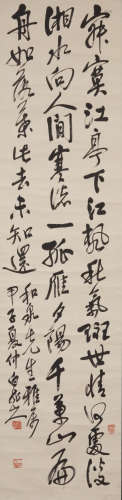 寂寞江亭下江楓秋氣斑世情何處淡
湘水向人閒寒渚一孤雁夕陽千萬山扁
舟如落葉此去未知還
和先生雅屬
甲子夏仲